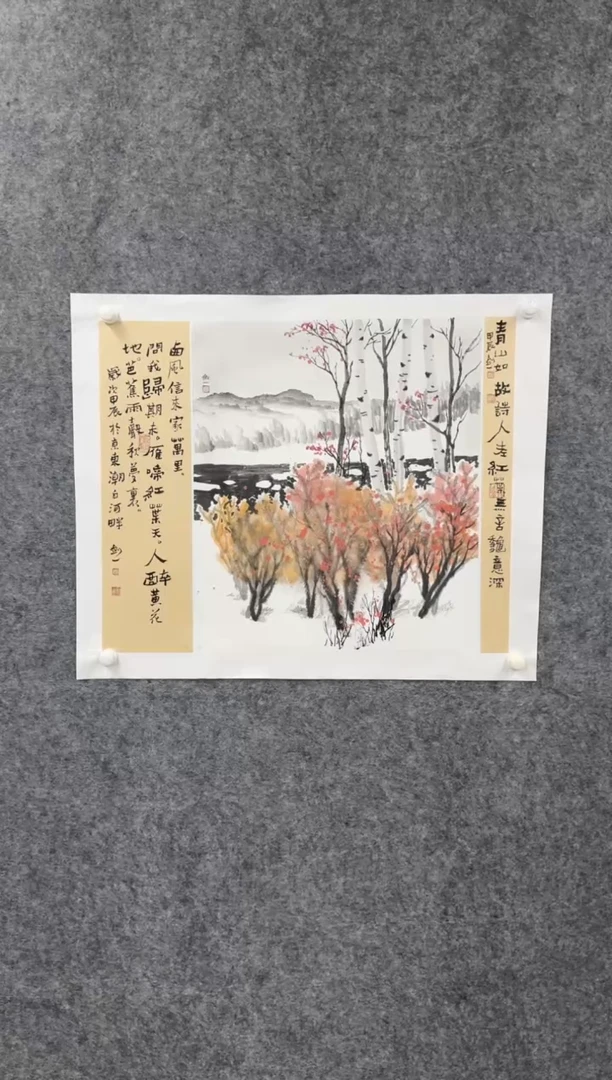 青山如故詩人老紅葉無言龝意深
甲辰
卤風信來家萬里
問我歸期未。雁啼紅葉天。人醉黃花
地。芭蕉雨聲秋夢裏。
歲次甲辰於京東潮白河畔